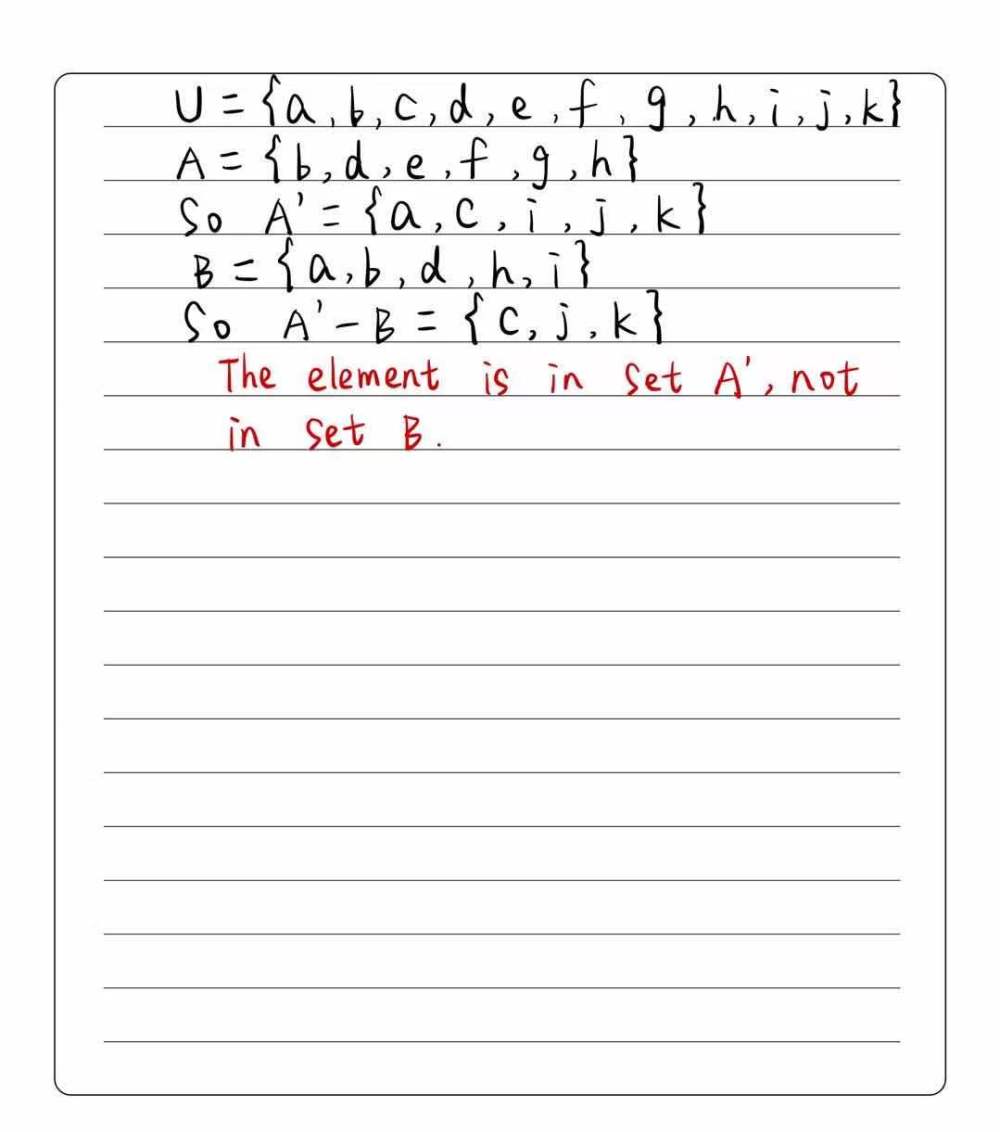 U = {a, b, c, d, e, f, g, h, i, j, k}
A = {b, d, e, f, g, h}
So A' = {a, c, i, j, k}
B = {a, b, d, h, i}
So A' - B = {c, j, k}
The element is in set A', not
in set B.